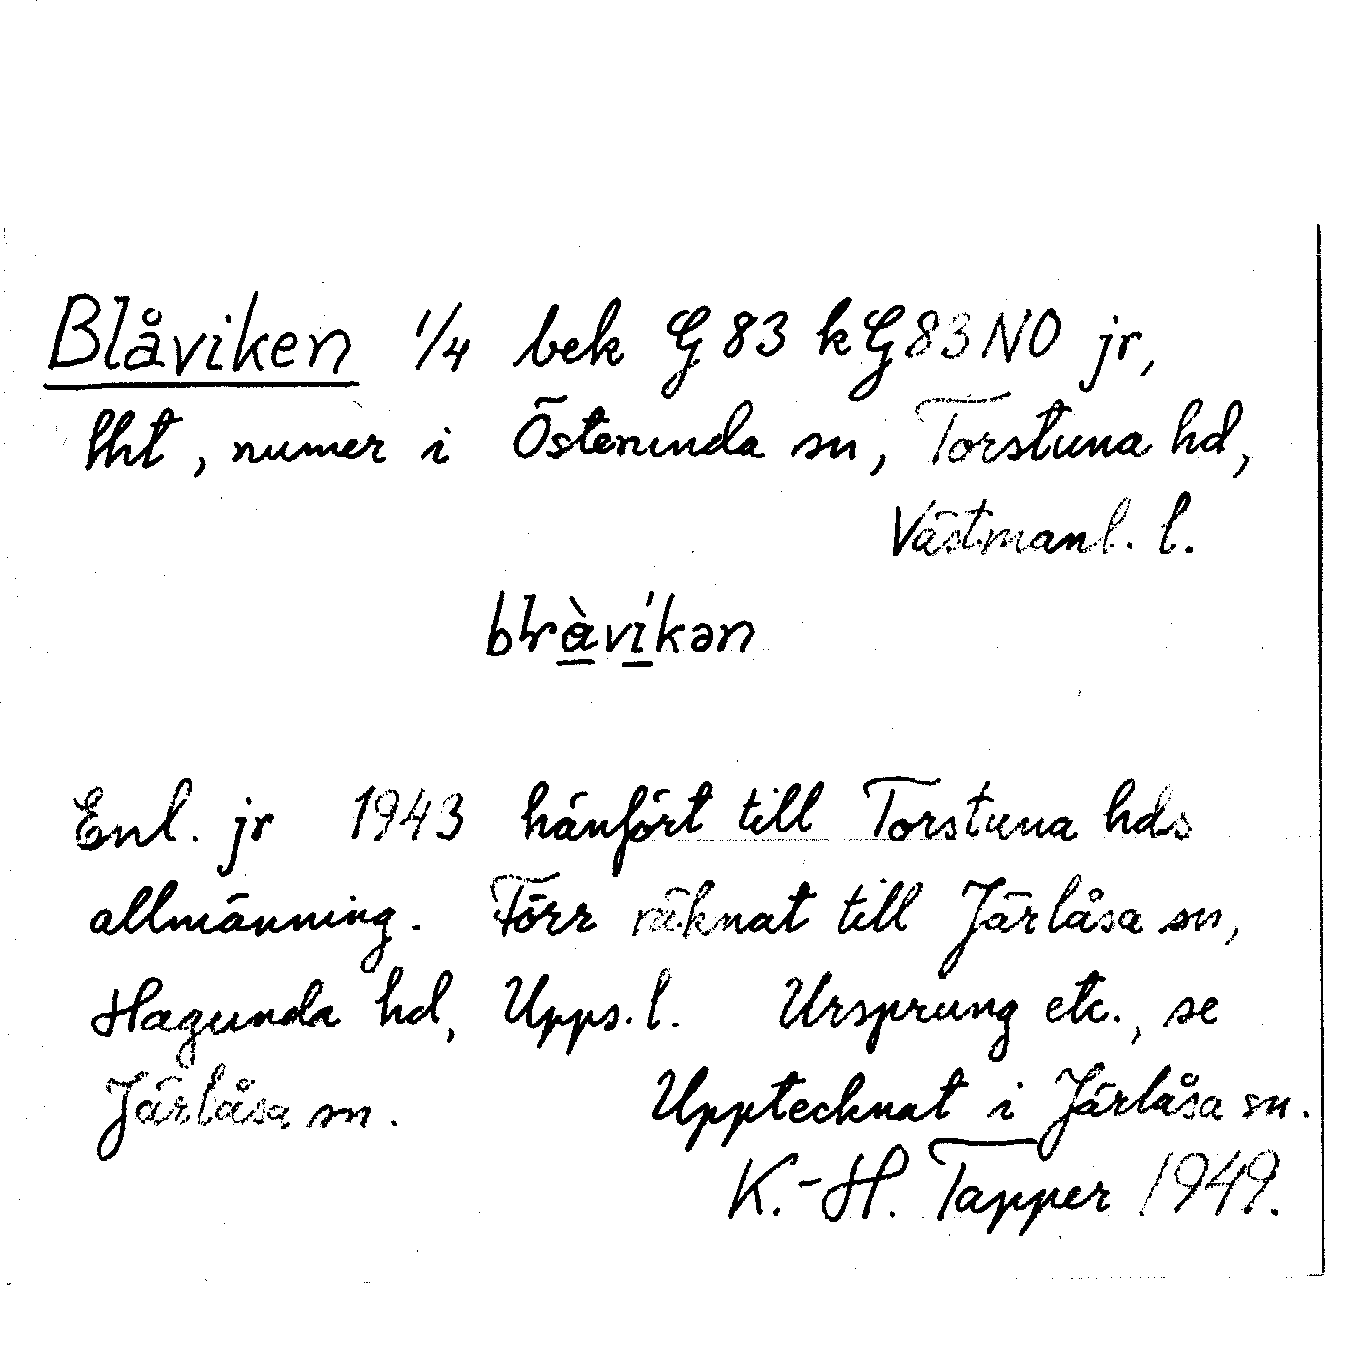 Blåviken 1/4 bek G 83 k G 83 NO jr,
lht, numer i Österunda sn, Torstuna hd,
Västmanl. l.
Enl. jr 1943 hänfört till Torstuna hds
allmänning. Förr räknat till Järlåsa sn,
Hagunda hd, Upps. l. Ursprung etc., se
Järlåsa sn. Upptecknat i Järlåsa sn.
K.-H. Tapper 1949.